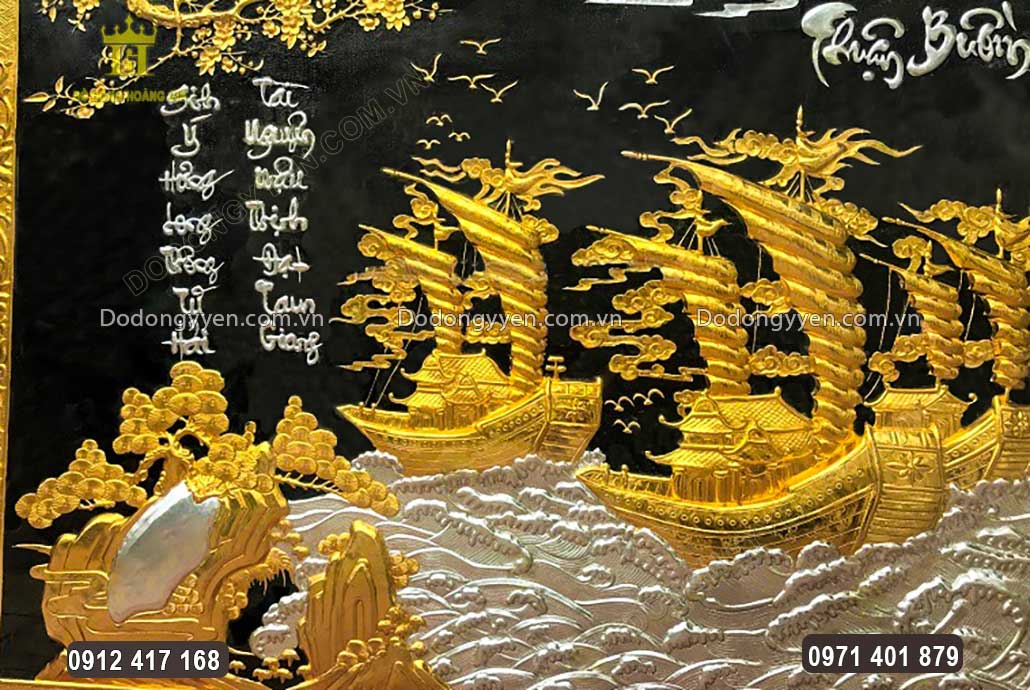 Thuận Buồm
Sinh
Ý
Hưng
Long
Thông
Tứ
Hải
Tài
Nguyên
Mậu
Thịnh
Đạt
Tam
Giang
Dodongyyen.com.vn Dodongyyen.com.vn Dodongyyen.com.vn
0912 417 168
0971 401 879